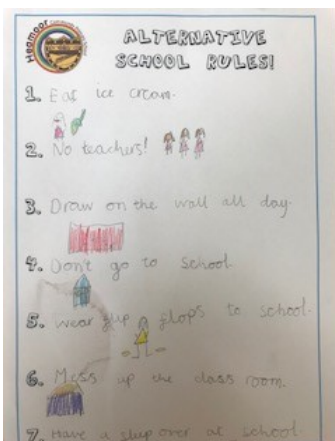 Heamoor
ALTERNATIVE
SCHOOL RULES!
1. Eat ice cream.
2. No teachers!
3. Draw on the wall all day.
4. Don't go to school.
5. Wear flip flops to school.
6. Mess up the class room.
7. Have a sleep over at school.